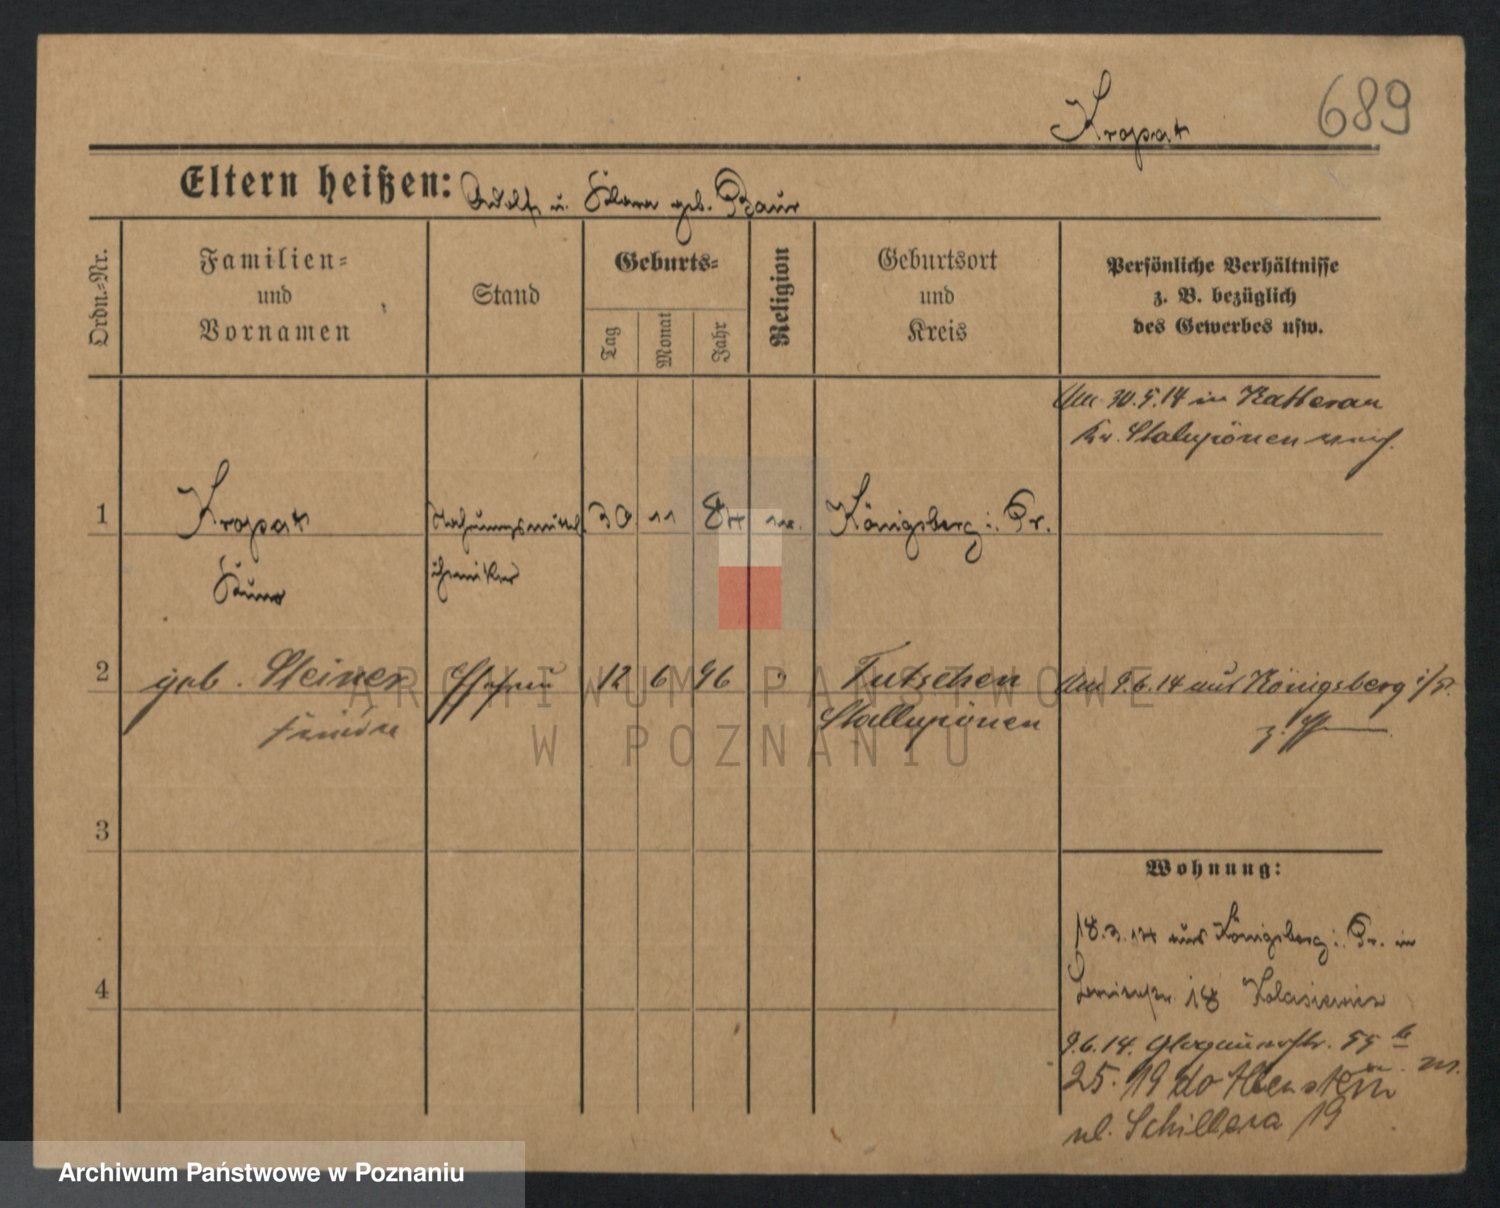 689
Kropat
Eltern heißen: Adolf u. Klara geb. Baur
Ordn.-Nr.
Familien-
und
Vornamen
Stand
Geburts-
Tag
Monat
Jahr
Religion
Geburtsort
und
Kreis
Persönliche Verhältnisse
z. B. bezüglich
des Gewerbes usw.
Am 30.5.14 in Katteran
Kr. Stalupönen
1
Kropat
Nahrungsmittel
30 11 84
Königsberg i. Pr.
Kuno
chemiker
2
geb. Steiner
Ehefrau
12 6 96
Tutschen
Am 9.6.14 aus Königsberg i/P.
Stallupönen
3
Wohnung:
18.3.14 aus Königsberg i. Pr. in
4
18
9.6.14. Glogauerstr. 55
25. 19 do Allenstein
ul. Schillera 19
ARCHIWUM PAŃSTWOWE
W POZNANIU
Archiwum Państwowe w Poznaniu